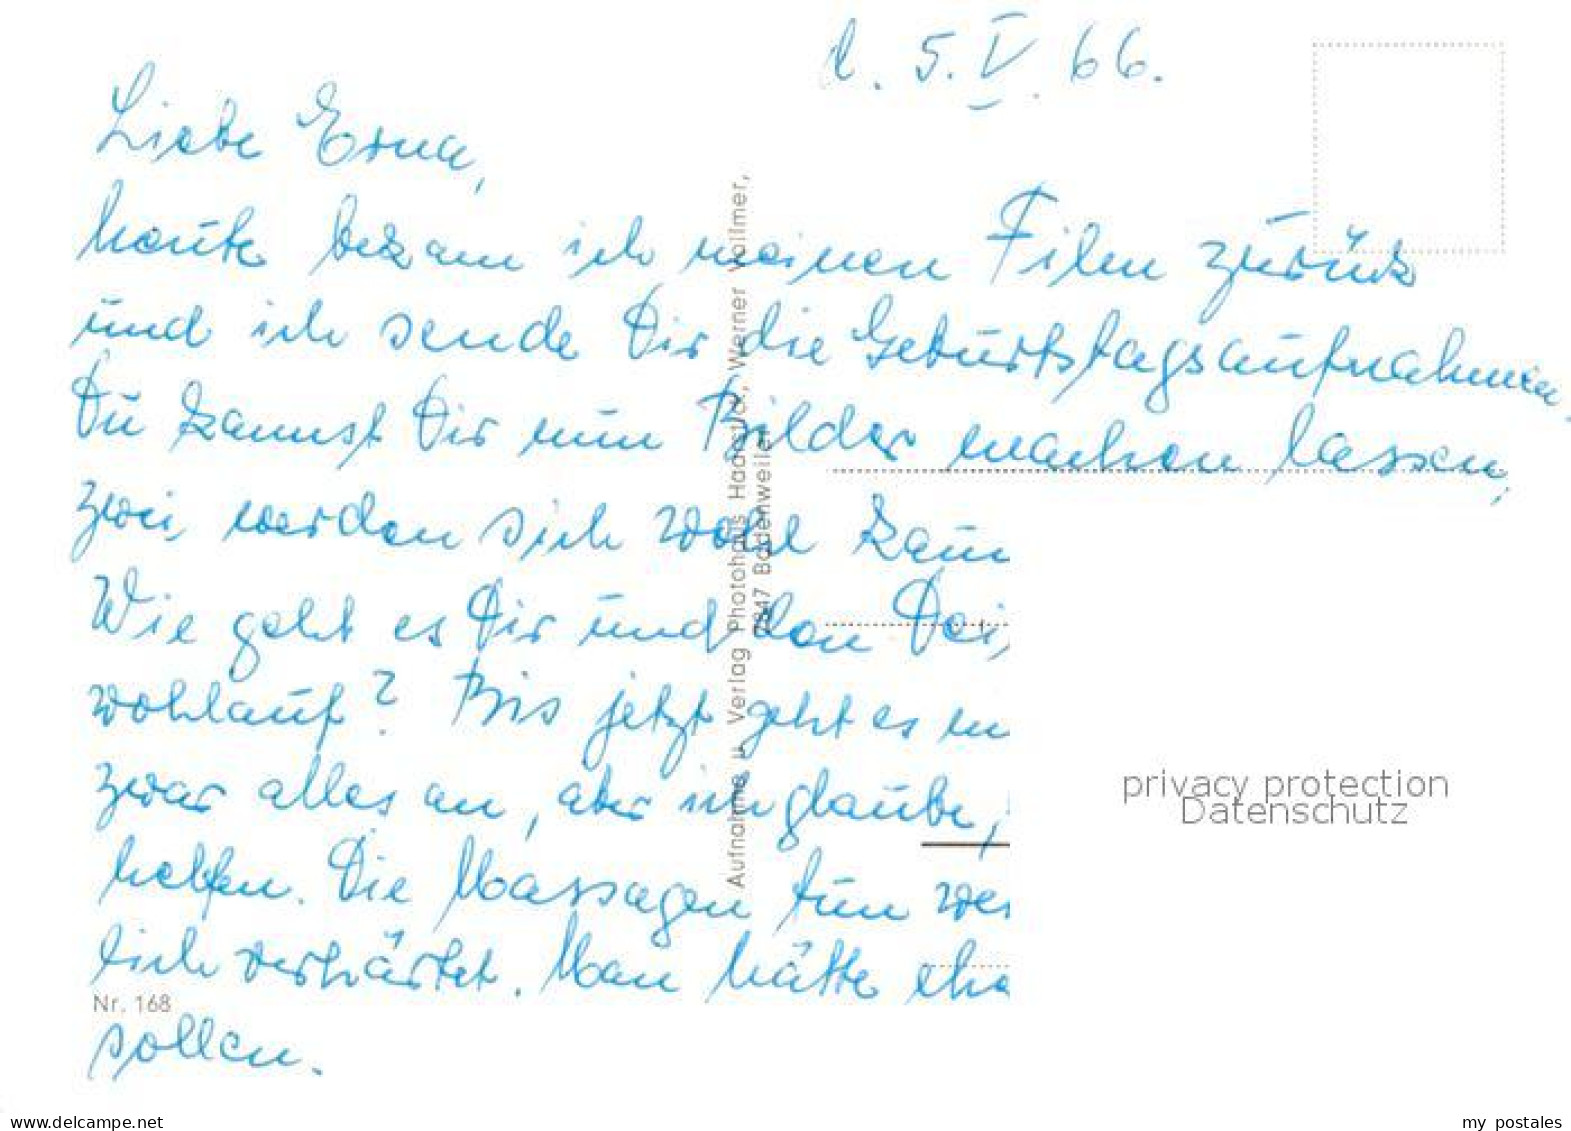 d. 5. V. 66.
Liebe Erna,
heute bekam ich meinen Film zurück
und ich sende Dir die Geburtstagsaufnahmen.
Du kannst Dir nun Bilder machen lassen,
werden sich wohl kaum
Wie geht es Dir und den Dei
wohlauf? Bis jetzt geht es
zwar alles an, aber ich glaube,
helfen. Die Massagen tun
lich verhärtet. Man hätte
sollen.
Aufnahme u. Verlag Photohaus Haarstud., Werner Vollmer,
7847 Badenweiler
Nr. 168
privacy protection
Datenschutz
www.delcampe.net
my_postales